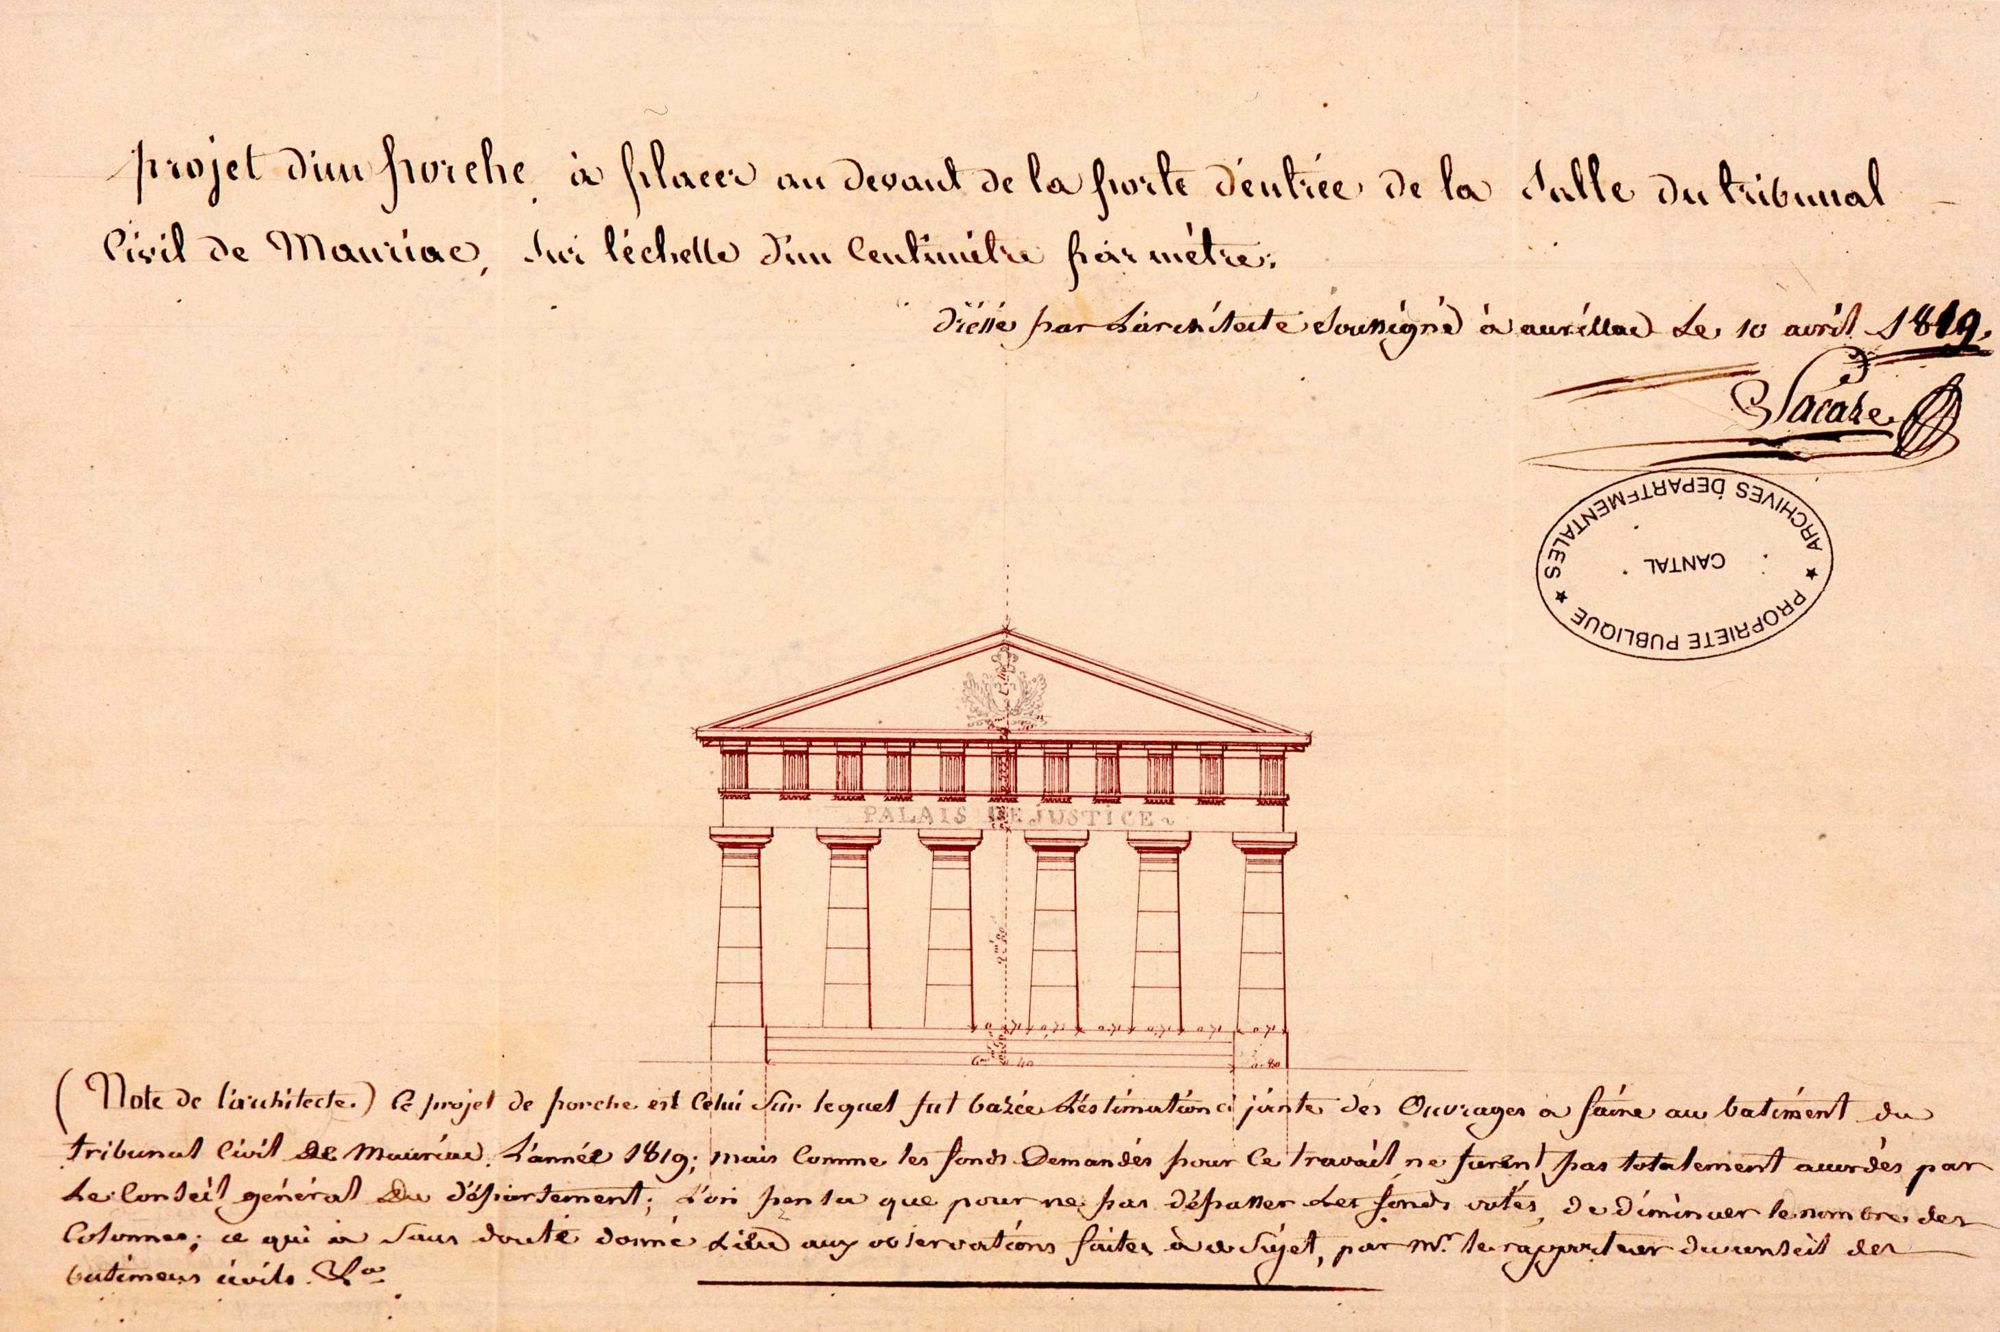 projet d'un porche, à placer au devant de la porte d'entrée de la Salle du tribunal
Civil de Mauriac, Sur l'échelle d'un Centimètre par mètre.
Dressé par L'architecte Soussigné à aurillac Le 10 avril 1819.
Lacaze
ARCHIVES DEPARTEMENTALES
CANTAL
★ PROPRIETE PUBLIQUE ★
PALAIS DE JUSTICE
0,71 0,71 0,71 0,71 0,71 0,71
6 40 0.80
(Note de l'architecte.) Ce projet de porche est Celui Sur lequel fut bazée L'éstimation ci jointe des Ouvrages à faire au batiment du
tribunal Civil de Mauriac. L'année 1819; mais Comme les fonds Demandés pour Ce travail ne furent pas totalement accordés par
Le Conseil général Du Département; L'on pensa que pour ne pas dépasser Les fonds votés, de diminuer le nombre des
Colonnes; ce qui a Sans doute donné Lieu aux observations faites à ce Sujet, par Mr. le rapporteur du conseil des
batimens civils.